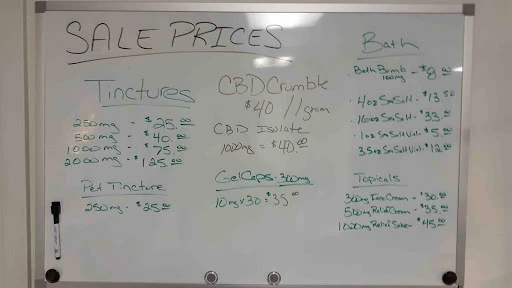 SALE PRICES
Tinctures
250mg - $25.00
500mg - $40.00
1000mg - $75.00
2000mg - $125.00
Pet Tincture
250mg - $25.00
CBD Crumble
$40 // 1gram
CBD Isolate
1000mg = $40.00
GelCaps - 300mg
10mg x 30 = $35.00
Bath
Bath Bomb - $8.00
100mg
4oz Salt - $13.50
16oz Salt - $33.00
1oz Salt Vial - $5.00
3.5oz Salt Vial - $12.00
Topicals
300mg Face Cream - $30.00
500mg Relief Cream - $35.00
1000mg Relief Salve - $45.00